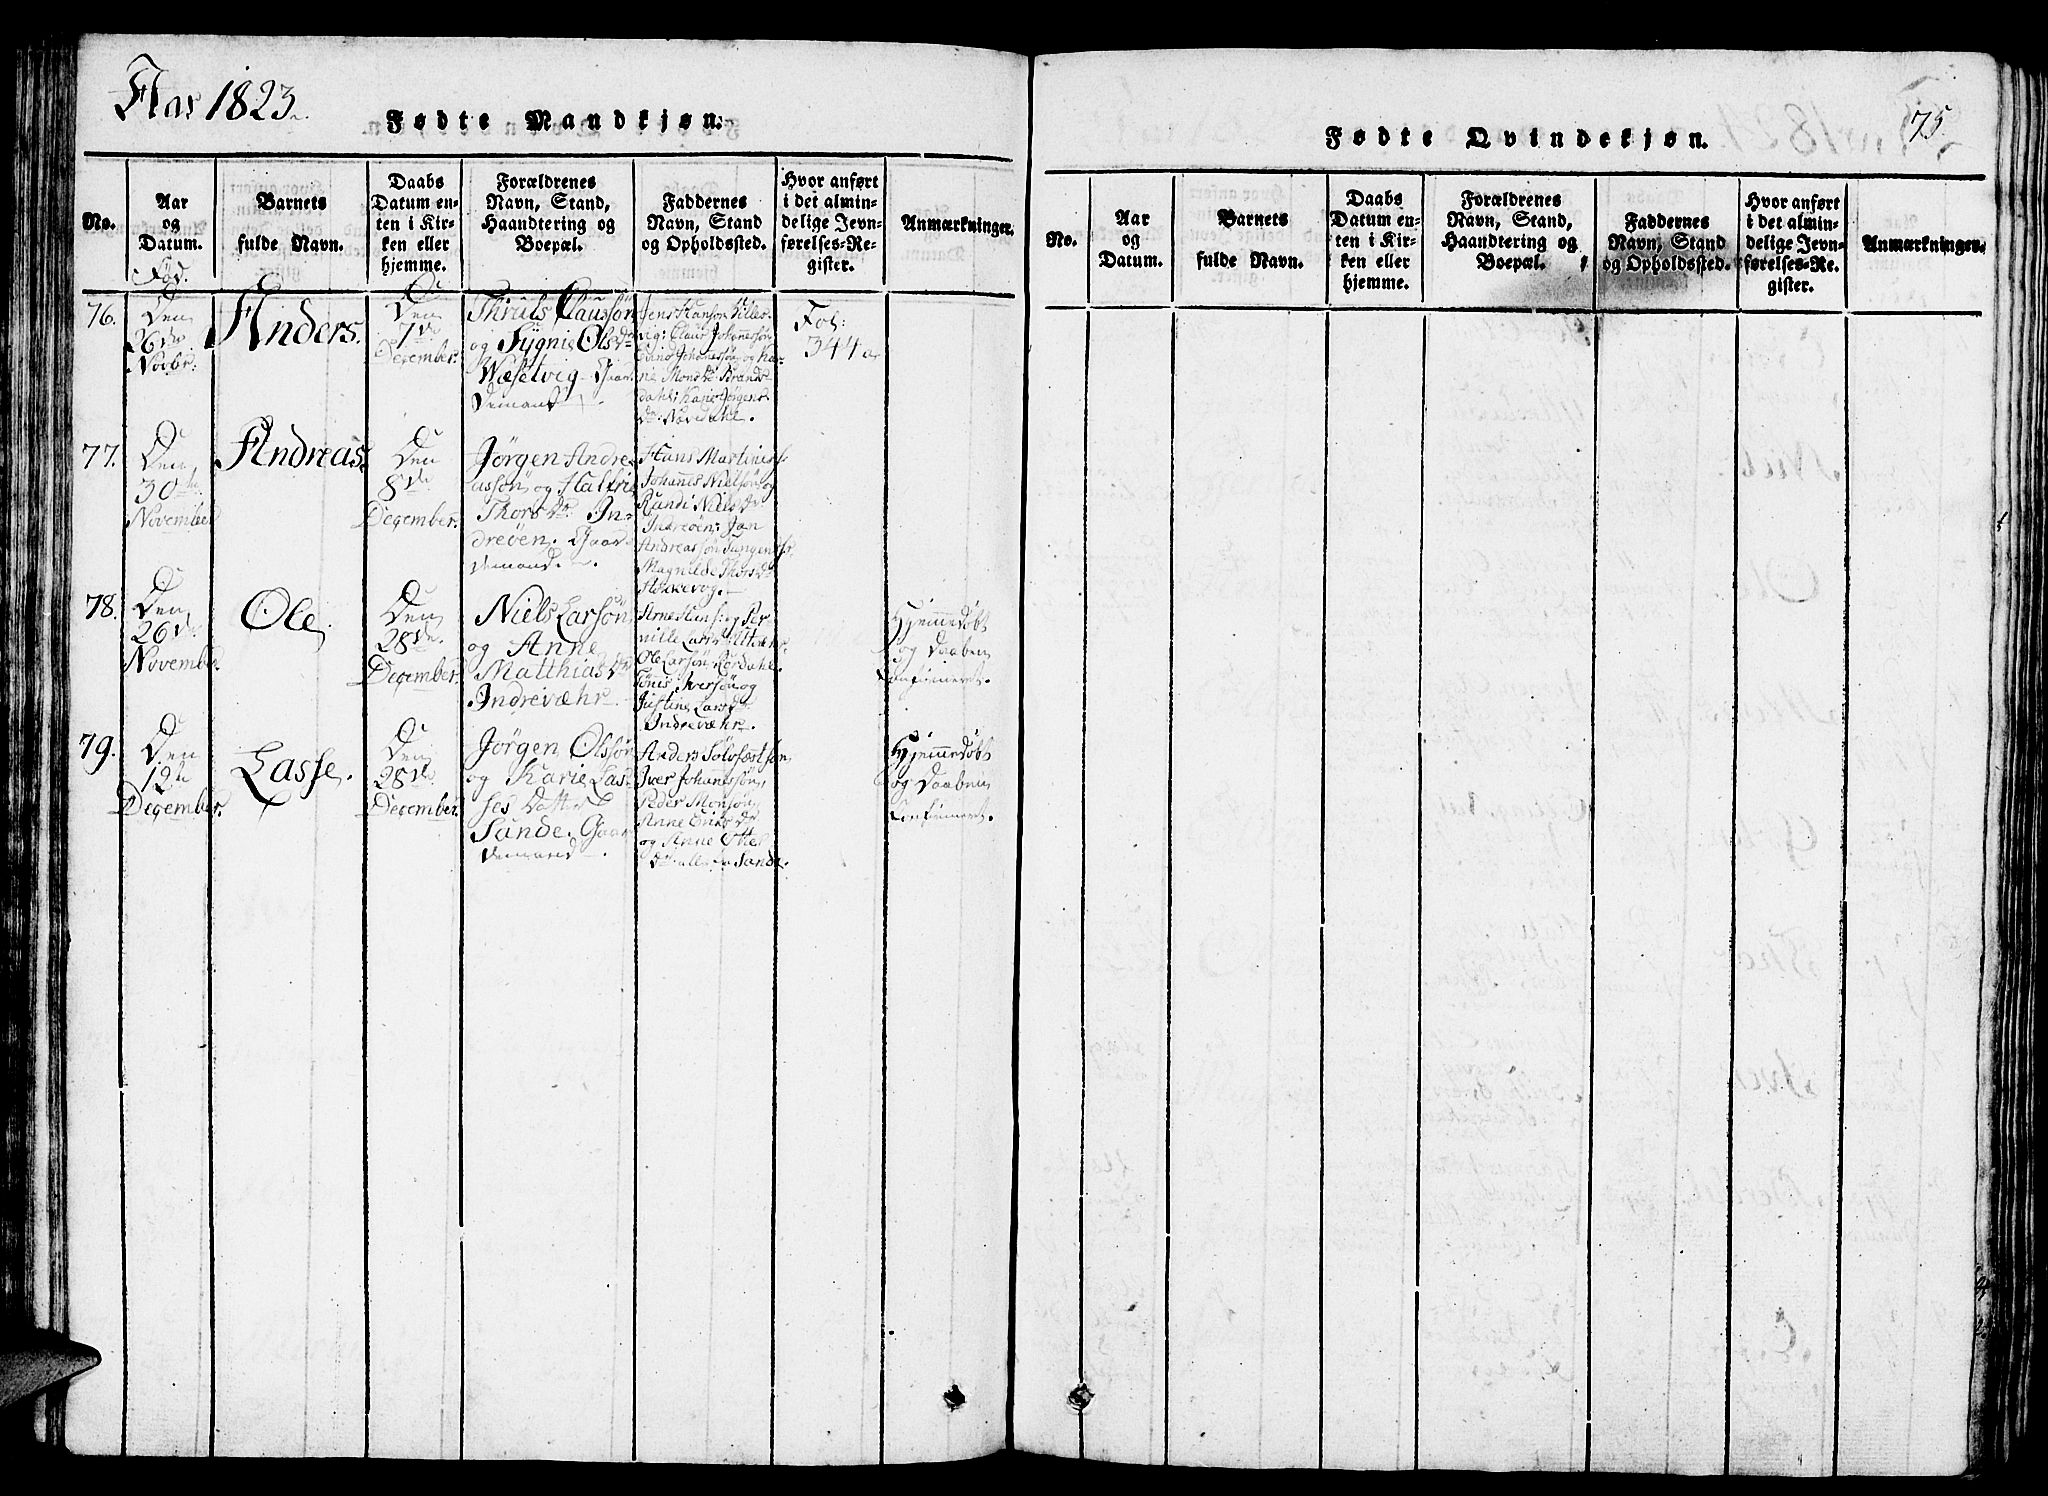 Aar 1823.
Fødte Mandkjøn.
No.
Aar
og
Datum.
Fød.
Barnets
fulde Navn.
Daabs
Datum en-
ten i Kir-
ken eller
hjemme.
Forældrenes
Navn, Stand,
Haandtering og
Boepæl.
Faddernes
Navn, Stand
og Opholdssted.
Hvor anført
i det almin-
delige Jevn-
førelses-Re-
gister.
Anmærkninger.
76.
Den
26de
Novbr:
Anders.
Den
7de
December.
Thruls Claussøn
og Sygnie Olsdr
Wæsetvig. Gaar
demand.
Jens Hanson
vig: Claus Johannessøn
Johanessøn og Ka-
rie Monsdr
dahl; Karie Jørgens
dr:
Fol:
344 a
77.
Den
30te
November
Andreas.
Den
8de
December.
Jørgen Andre
assøn og
Thorsdr In-
dreöen. Gaar
demand.
Hans
Johannes Nielsøn og
Randi Nielsdr
Indreöen; Jan
Andreassøn
Magnilde Thorsdr
78.
Den
26de
November
Ole
Den
28de
December.
Niels Larsøn
og Anne
Matthiasdr
Indrevæhr.
og Per
nille Larsdr
Ole Larsøn,
Tønis Iversøn og
Justine Larsdr
Indrevæhr.
Hjemmedøbt
og Daaben
Confirmeret.
79.
Den
12te
December.
Lasse.
Den
28de
December.
Jørgen Olssøn
og Karie Las-
ses Datter
Sande. Gaar
demand.
Anders
Iver Johanessøn,
Peder Monsøn,
Anne Eriksdr
og Anne
dr. alle fra Sande.
Hjemmedøbt
og Daaben
Confirmeret.
75.
Fødte Qvindekjøn.
No.
Aar
og
Datum.
Barnets
fulde Navn.
Daabs
Datum en-
ten i Kir-
ken eller
hjemme.
Forældrenes
Navn, Stand,
Haandtering og
Boepæl.
Faddernes
Navn, Stand
og Opholdssted.
Hvor anført
i det almin-
delige Jevn-
førelses-Re-
gister.
Anmærkninger.